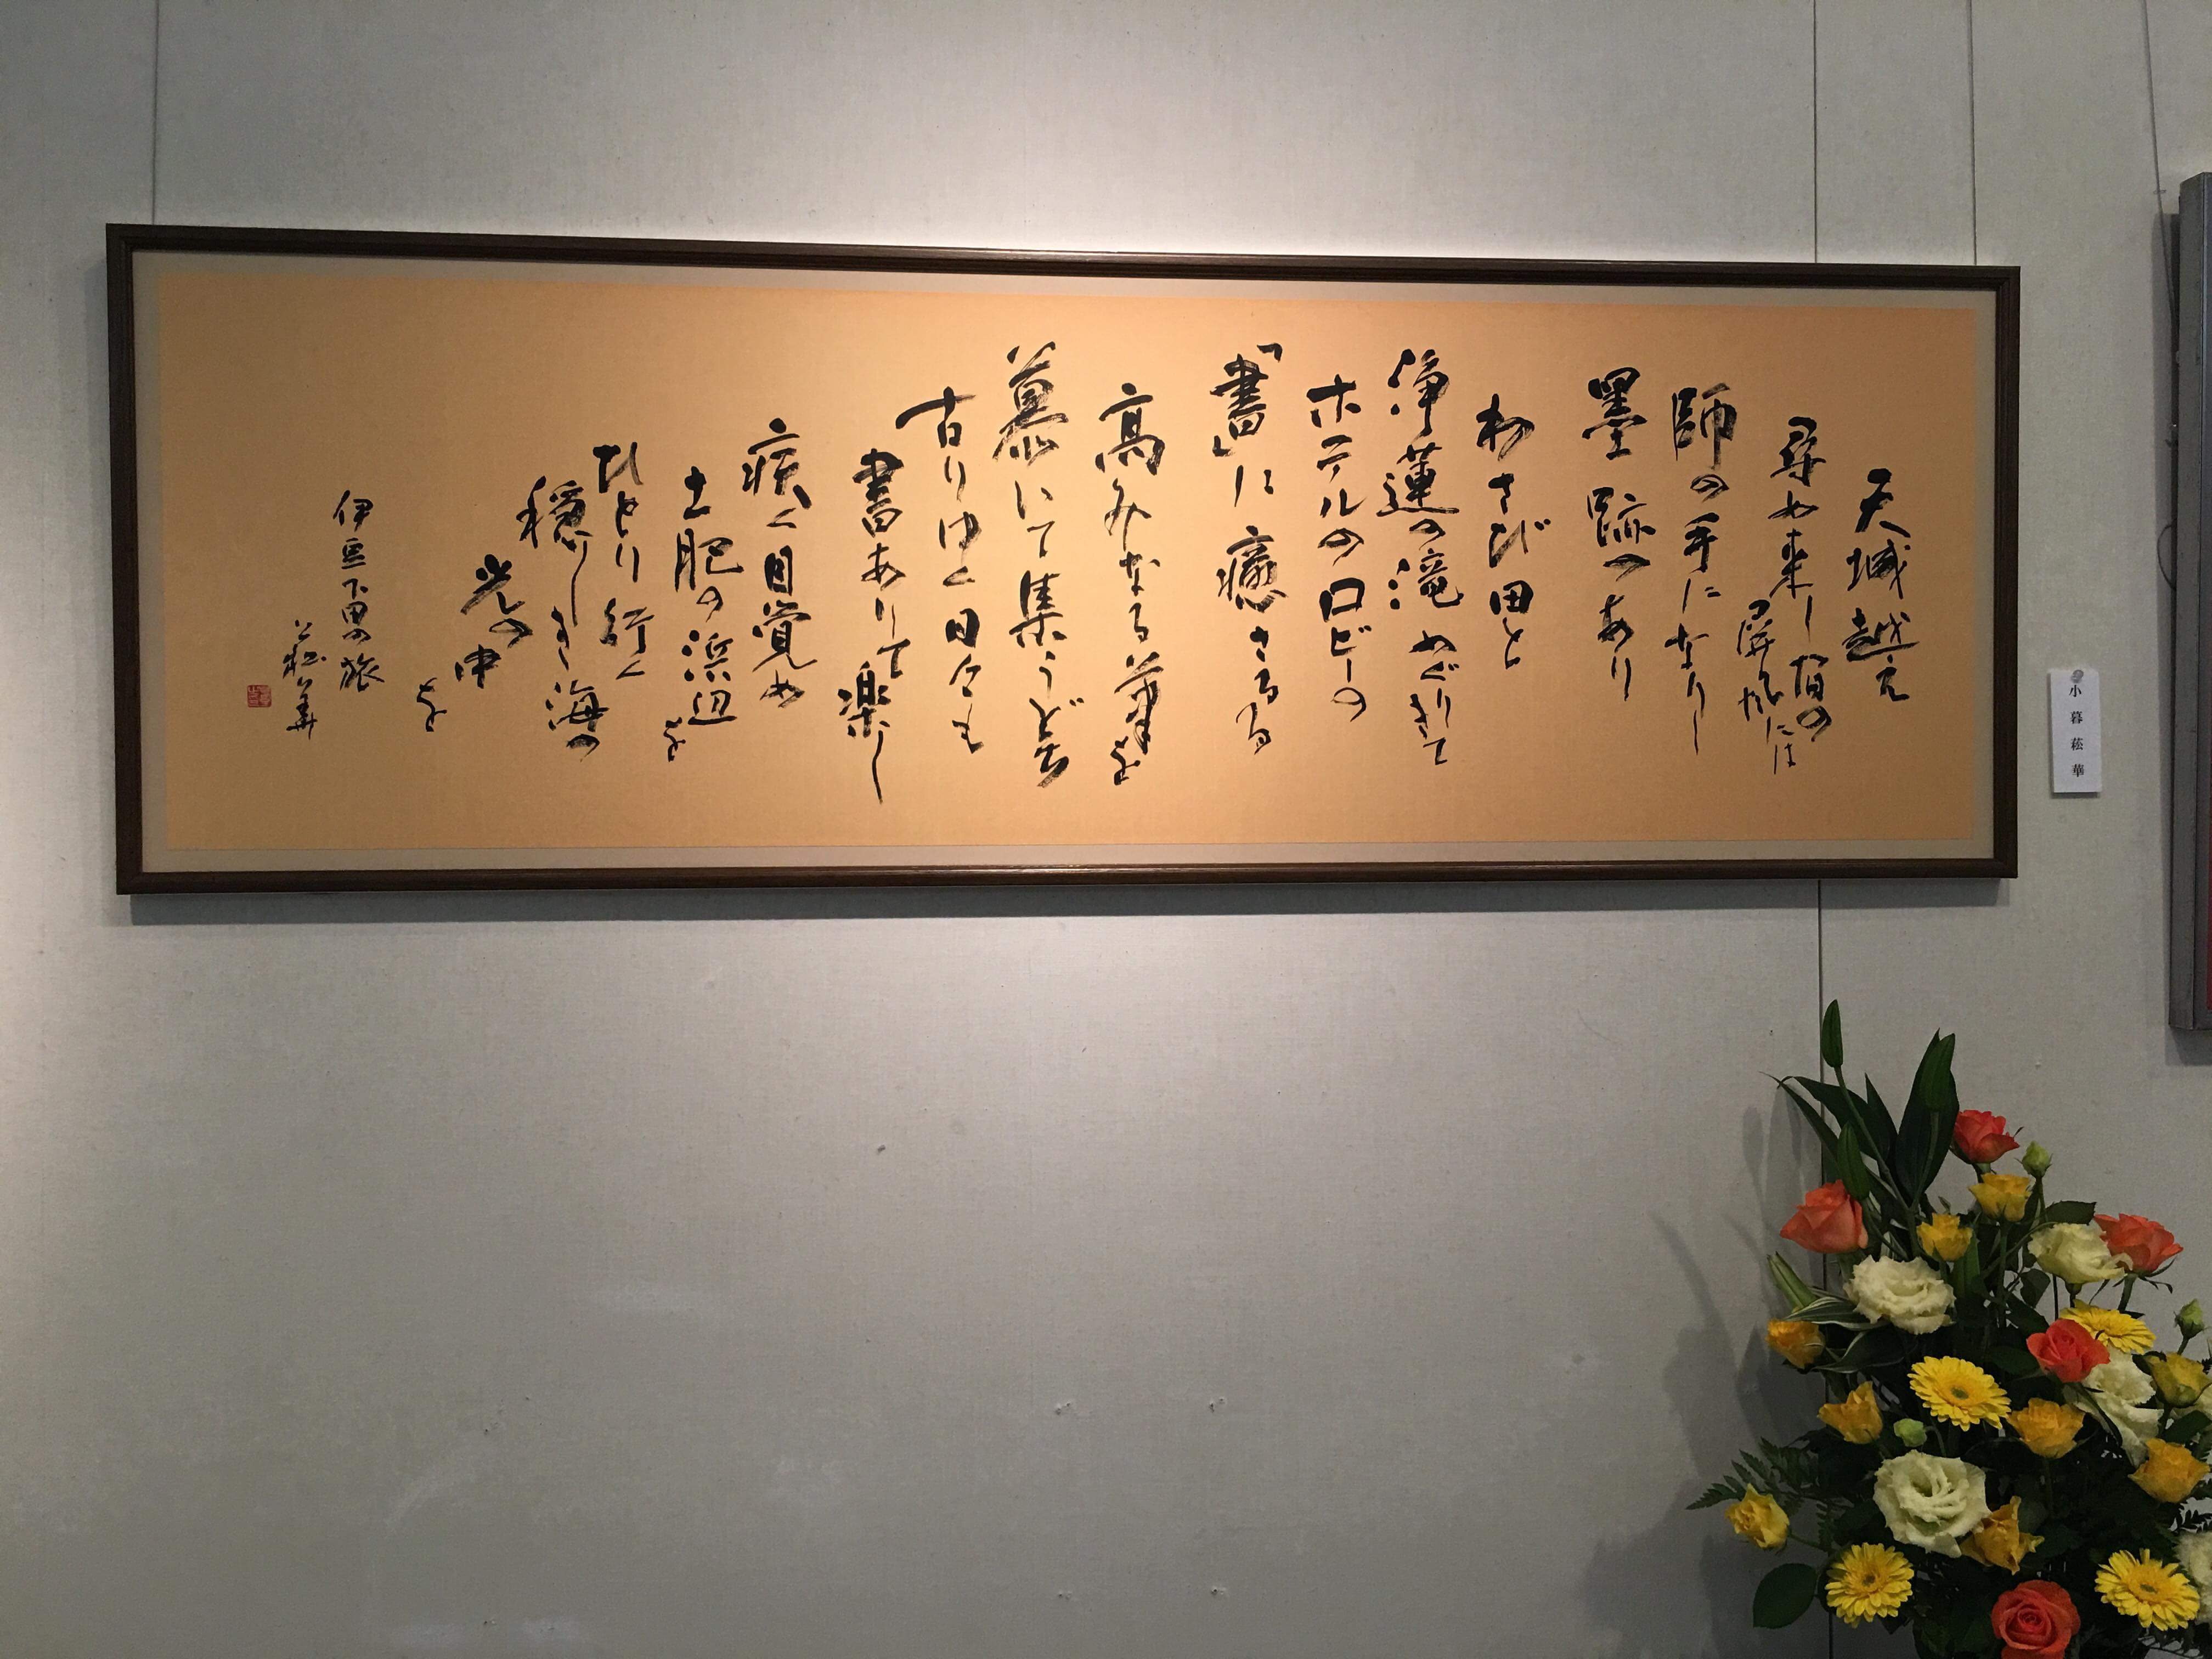 天城越え
尋め来し宿の
屏風には
師の手になりし
墨跡のあり
わさび田と
浄蓮の滝めぐりきて
ホテルのロビーの
「書」に癒さるる
高みなる筆を
慕いて集うどち
古りゆく日々も
書ありて楽し
疾く目覚め
土肥の浜辺を
ひとり行く
穏しき海の
光の中を
伊豆下田の旅
菘華
小暮菘華